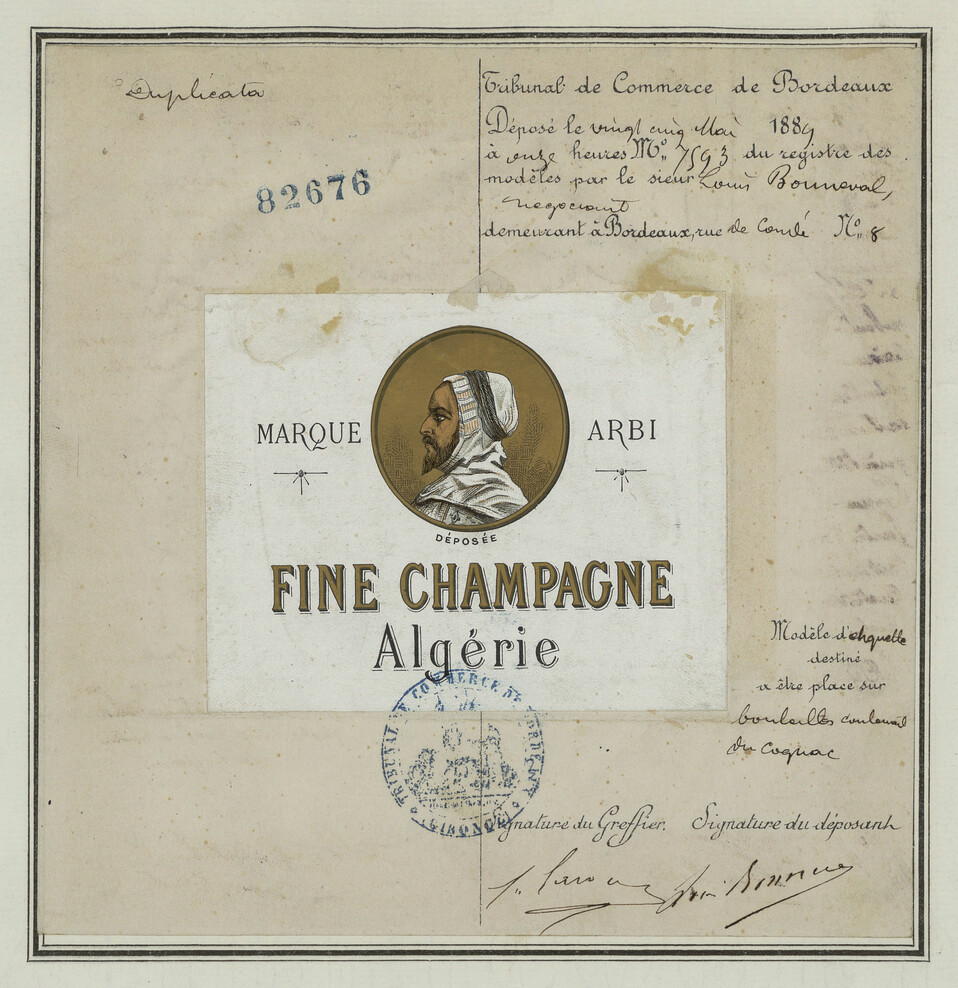 Duplicata
82676
Tribunal de Commerce de Bordeaux
Déposé le vingt cinq Mai 1889
à onze heures Mo. No. 7593 du registre des
modèles par le sieur Louis Bonneval,
negociant
demeurant à Bordeaux, rue de Condé No. 8
MARQUE ARBI
DÉPOSÉE
FINE CHAMPAGNE
Algérie
Modèle d'etiquette
destiné
a être place sur
bouteilles contenant
du cognac
TRIBUNAL DE COMMERCE DE BORDEAUX
GIRONDE
Signature du Greffier. Signature du déposant